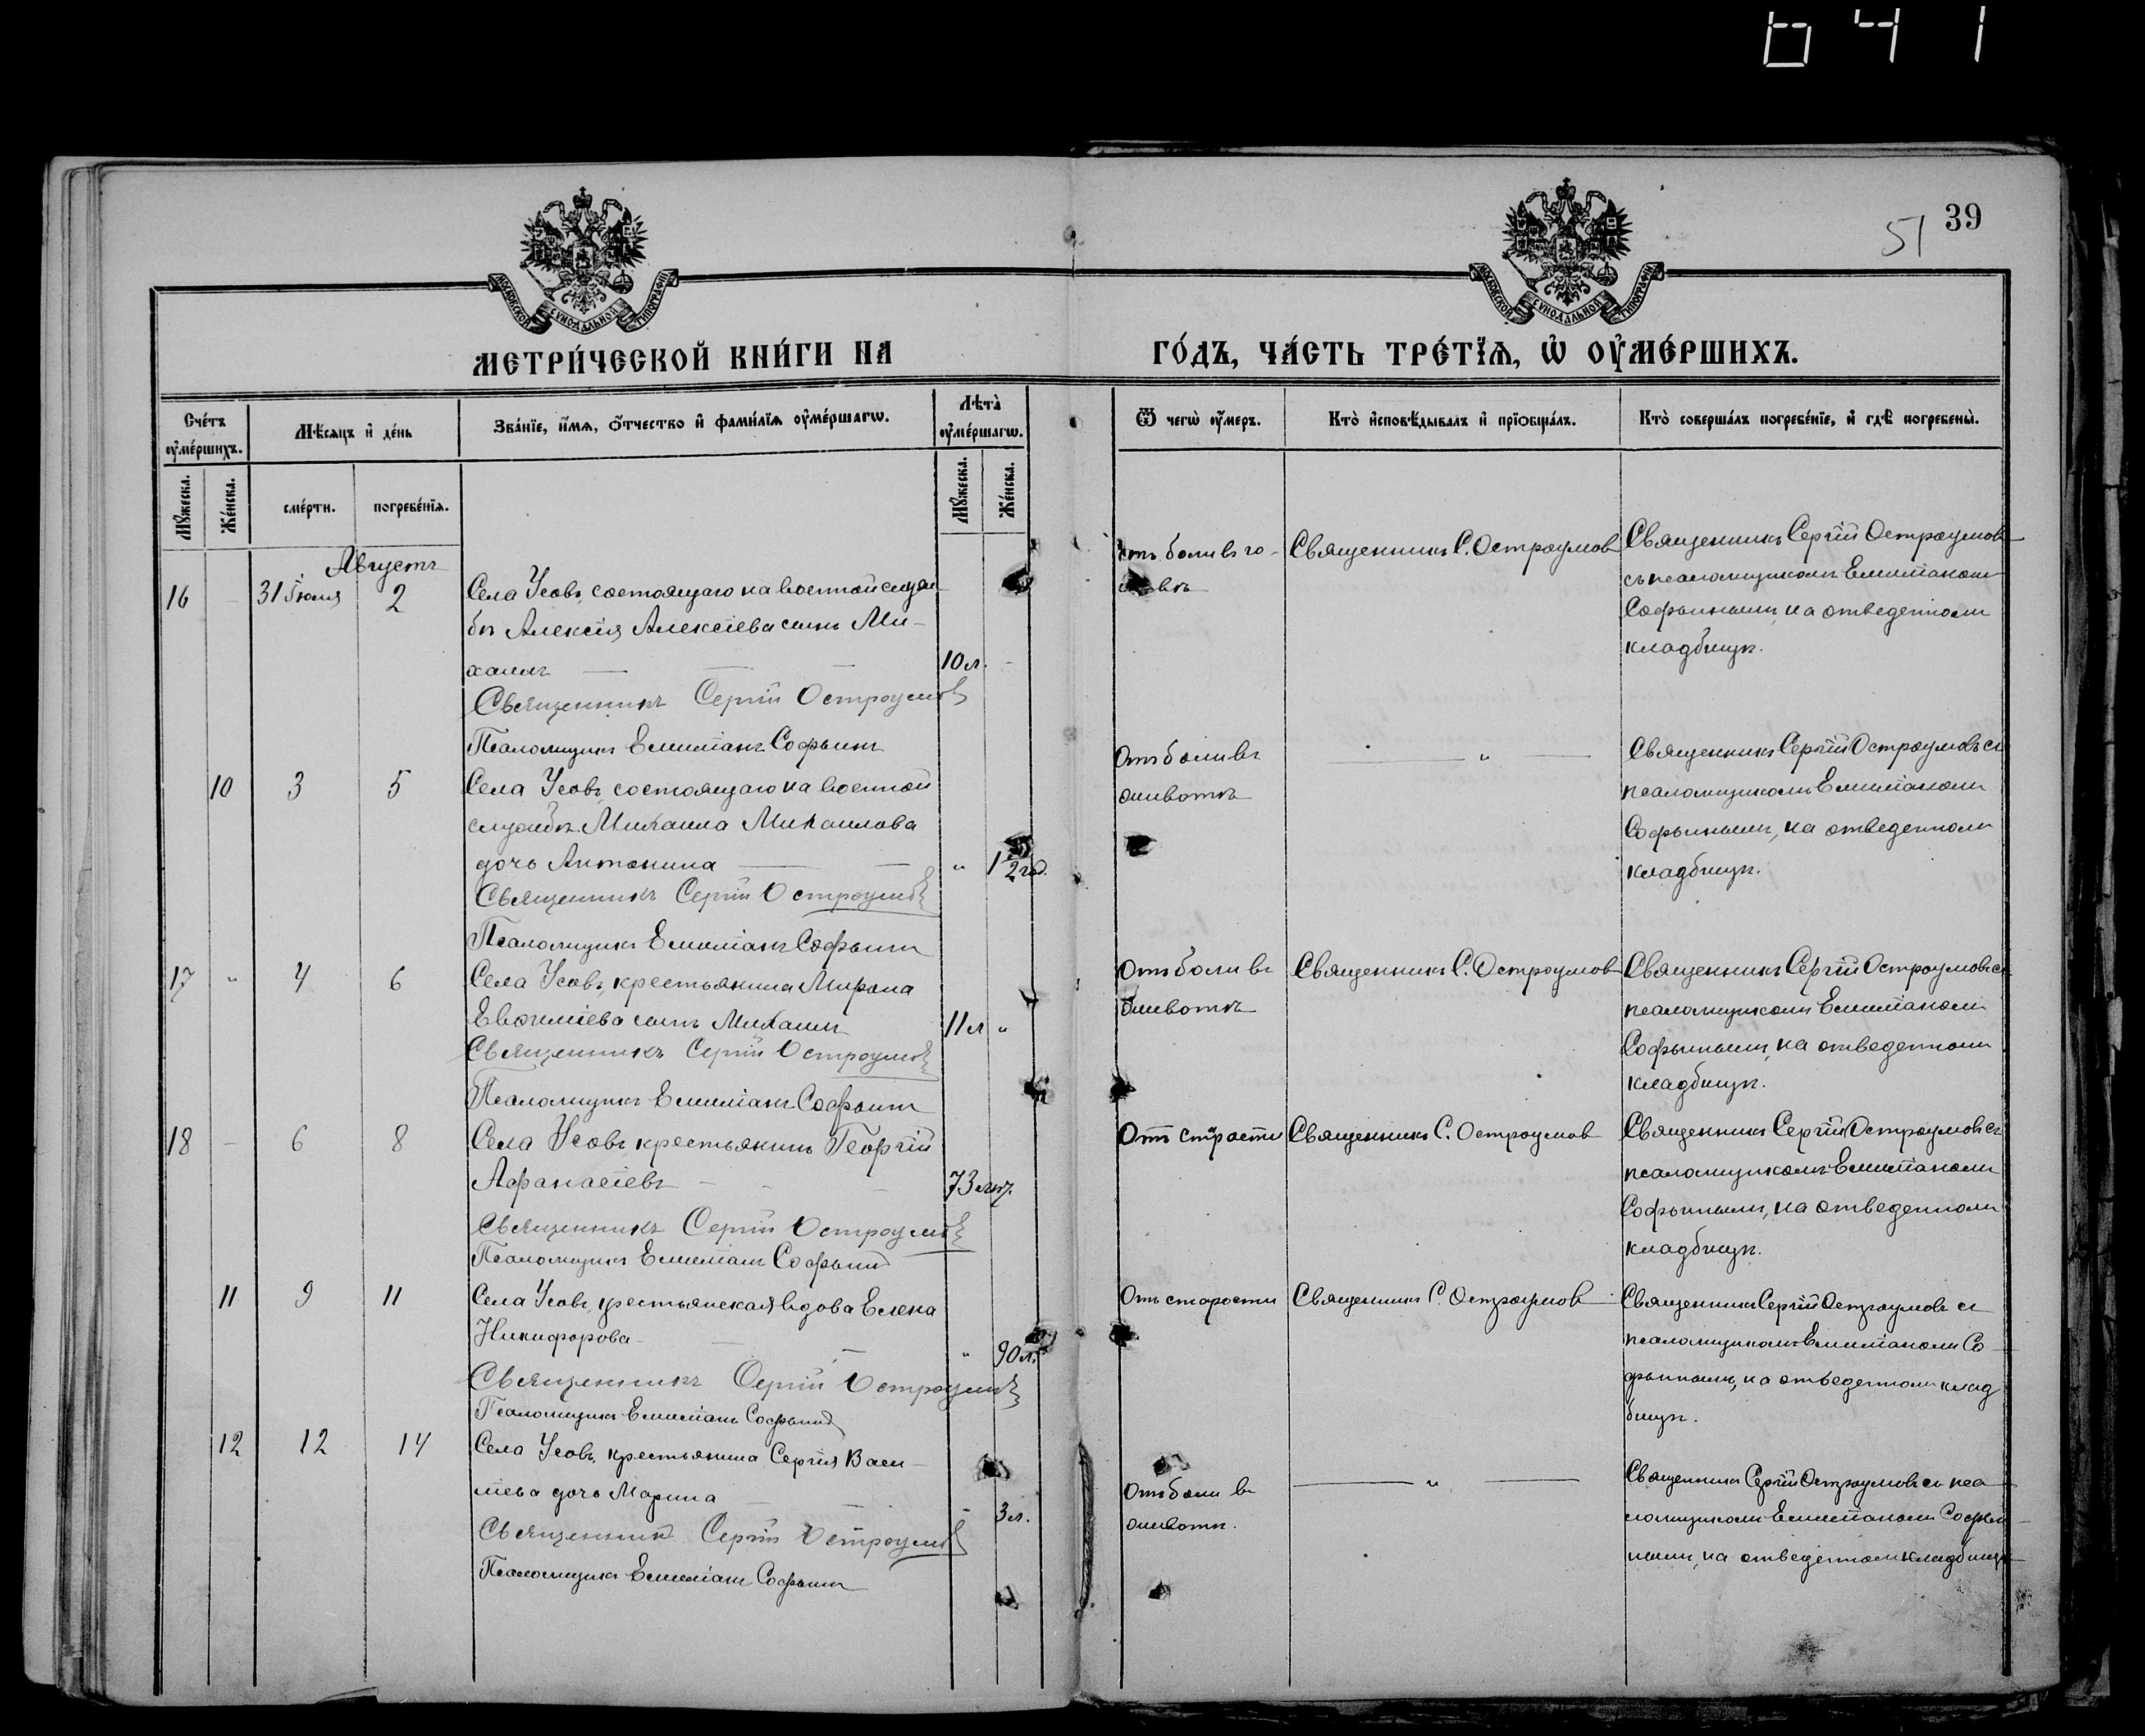 641
51
39
МОСКОВСКОЙ СѴНОДАЛЬНОЙ ТИПОГРАФІИ
МОСКОВСКОЙ СѴНОДАЛЬНОЙ ТИПОГРАФІИ
МЕТРИ́ЧЕСКОЙ КНИ́ГИ НА
ГО́ДЪ, ЧА́СТЬ ТРЕ́ТЇѦ, Ѡ҆ ОУ҆МЕ́РШИХЪ.
Сче́тъ оу҆ме́ршихъ.
Мѣ́сѧцъ и҆ де́нь
Зва́нїе, и҆́мѧ, ѻ҆́тчество и҆ фами́лїѧ оу҆ме́ршагѡ.
Лѣ́та оу҆ме́ршагѡ.
Ѿ чегѡ̀ оу҆́меръ.
Кто̀ и҆сповѣ́дывалъ и҆ прїѻбща́лъ.
Кто̀ соверша́лъ погребе́нїе, и҆ гдѣ̀ погребены̀.
Мꙋ́жеска.
Же́нска.
сме́рти.
погребе́нїѧ.
Мꙋ́жеска.
Же́нска.
Августъ
16 – 31 Іюля 2
Села Усовъ, состоящаго на военной служ-
бѣ Алексія Алексіева сынъ Ми-
хаилъ
10 л. –
Священникъ Сергій Остроумовъ
Псаломщикъ Емиліанъ Софьинъ
отъ боли въ го-
ловѣ
Священникъ С. Остроумовъ
Священникъ Сергій Остроумовъ
съ псаломщикомъ Емиліаномъ
Софьинымъ, на отведенномъ
кладбищѣ.
10 3 5
Села Усовъ, состоящаго на военной
службѣ Михаила Михаилова
дочь Антонина
" 1/2 год.
Священникъ Сергій Остроумовъ
Псаломщикъ Емиліанъ Софьинъ
Отъ боли въ
животѣ
"
Священникъ Сергій Остроумовъ съ
псаломщикомъ Емиліаномъ
Софьинымъ, на отведенномъ
кладбищѣ.
17 " 4 6
Села Усовъ, крестьянина Мирона
Евѳиміева сынъ Михаилъ
11 л "
Священникъ Сергій Остроумовъ
Псаломщикъ Емиліанъ Софьинъ
Отъ боли въ
животѣ
Священникъ С. Остроумовъ
Священникъ Сергій Остроумовъ съ
псаломщикомъ Емиліаномъ
Софьинымъ, на отведенномъ
кладбищѣ.
18 – 6 8
Села Усовъ крестьянинъ Георгій
Аѳанасіевъ
73 лѣт.
Священникъ Сергій Остроумовъ
Псаломщикъ Емиліанъ Софьинъ
Отъ старости
Священникъ С. Остроумовъ
Священникъ Сергій Остроумовъ съ
псаломщикомъ Емиліаномъ
Софьинымъ, на отведенномъ
кладбищѣ.
11 9 11
Села Усовъ, крестьянская вдова Елена
Никифорова
" 90 л.
Священникъ Сергій Остроумовъ
Псаломщикъ Емиліанъ Софьинъ
Отъ старости
Священникъ С. Остроумовъ
Священникъ Сергій Остроумовъ съ
псаломщикомъ Емиліаномъ Со-
фьинымъ, на отведенномъ клад
бищѣ.
12 12 14
Села Усовъ, крестьянина Сергія Васи-
ліева дочь Марина
– 3 л.
Священникъ Сергій Остроумовъ
Псаломщикъ Емиліанъ Софьинъ
Отъ боли въ
животѣ.
"
Священникъ Сергій Остроумовъ съ пса-
ломщикомъ Емиліаномъ Софьи-
нымъ, на отведенномъ кладбищѣ